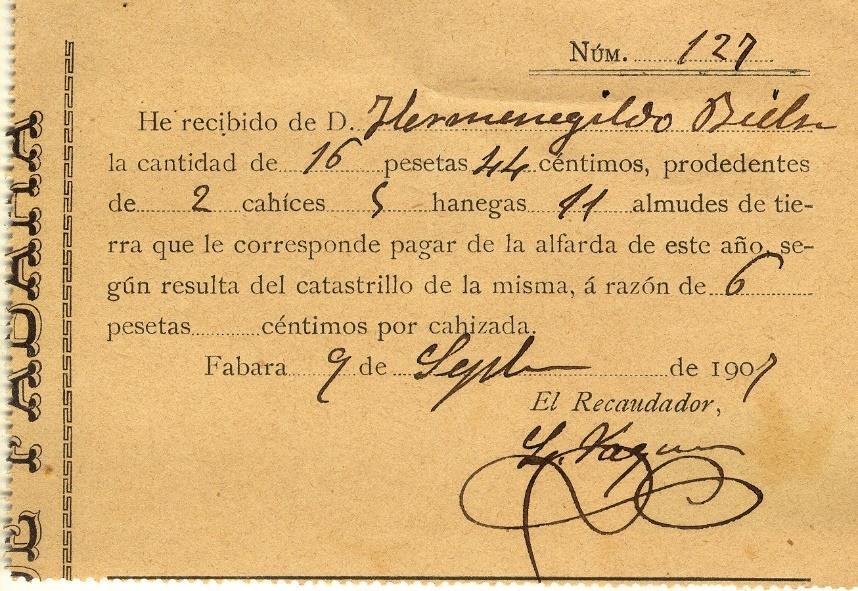 NÚM. 127
He recibido de D. Hermenegildo Biels
la cantidad de 16 pesetas 44 céntimos, prodedentes
de 2 cahíces 5 hanegas 11 almudes de tie-
rra que le corresponde pagar de la alfarda de este año, se-
gún resulta del catastrillo de la misma, á razón de 6
pesetas céntimos por cahizada.
Fabara 9 de Sepbre de 1907
El Recaudador,